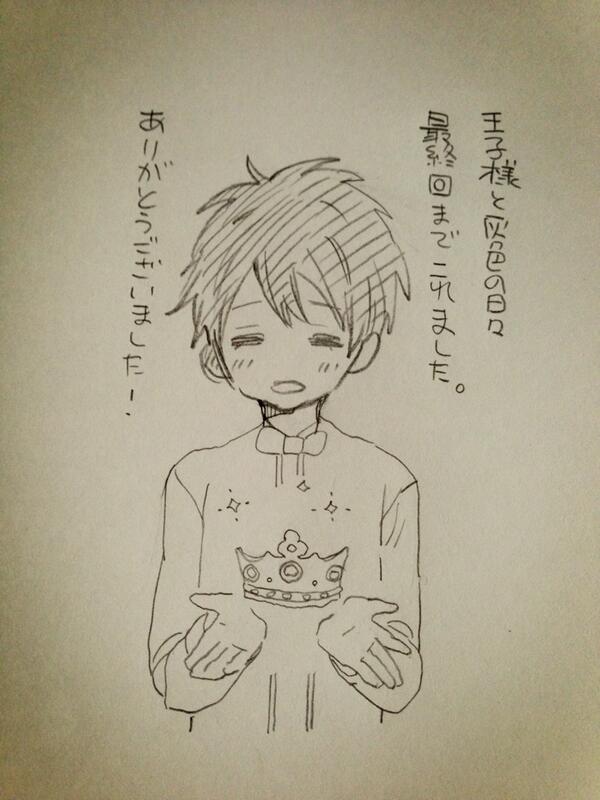 王子様と灰色の日々
最終回までこれました。
ありがとうございました！